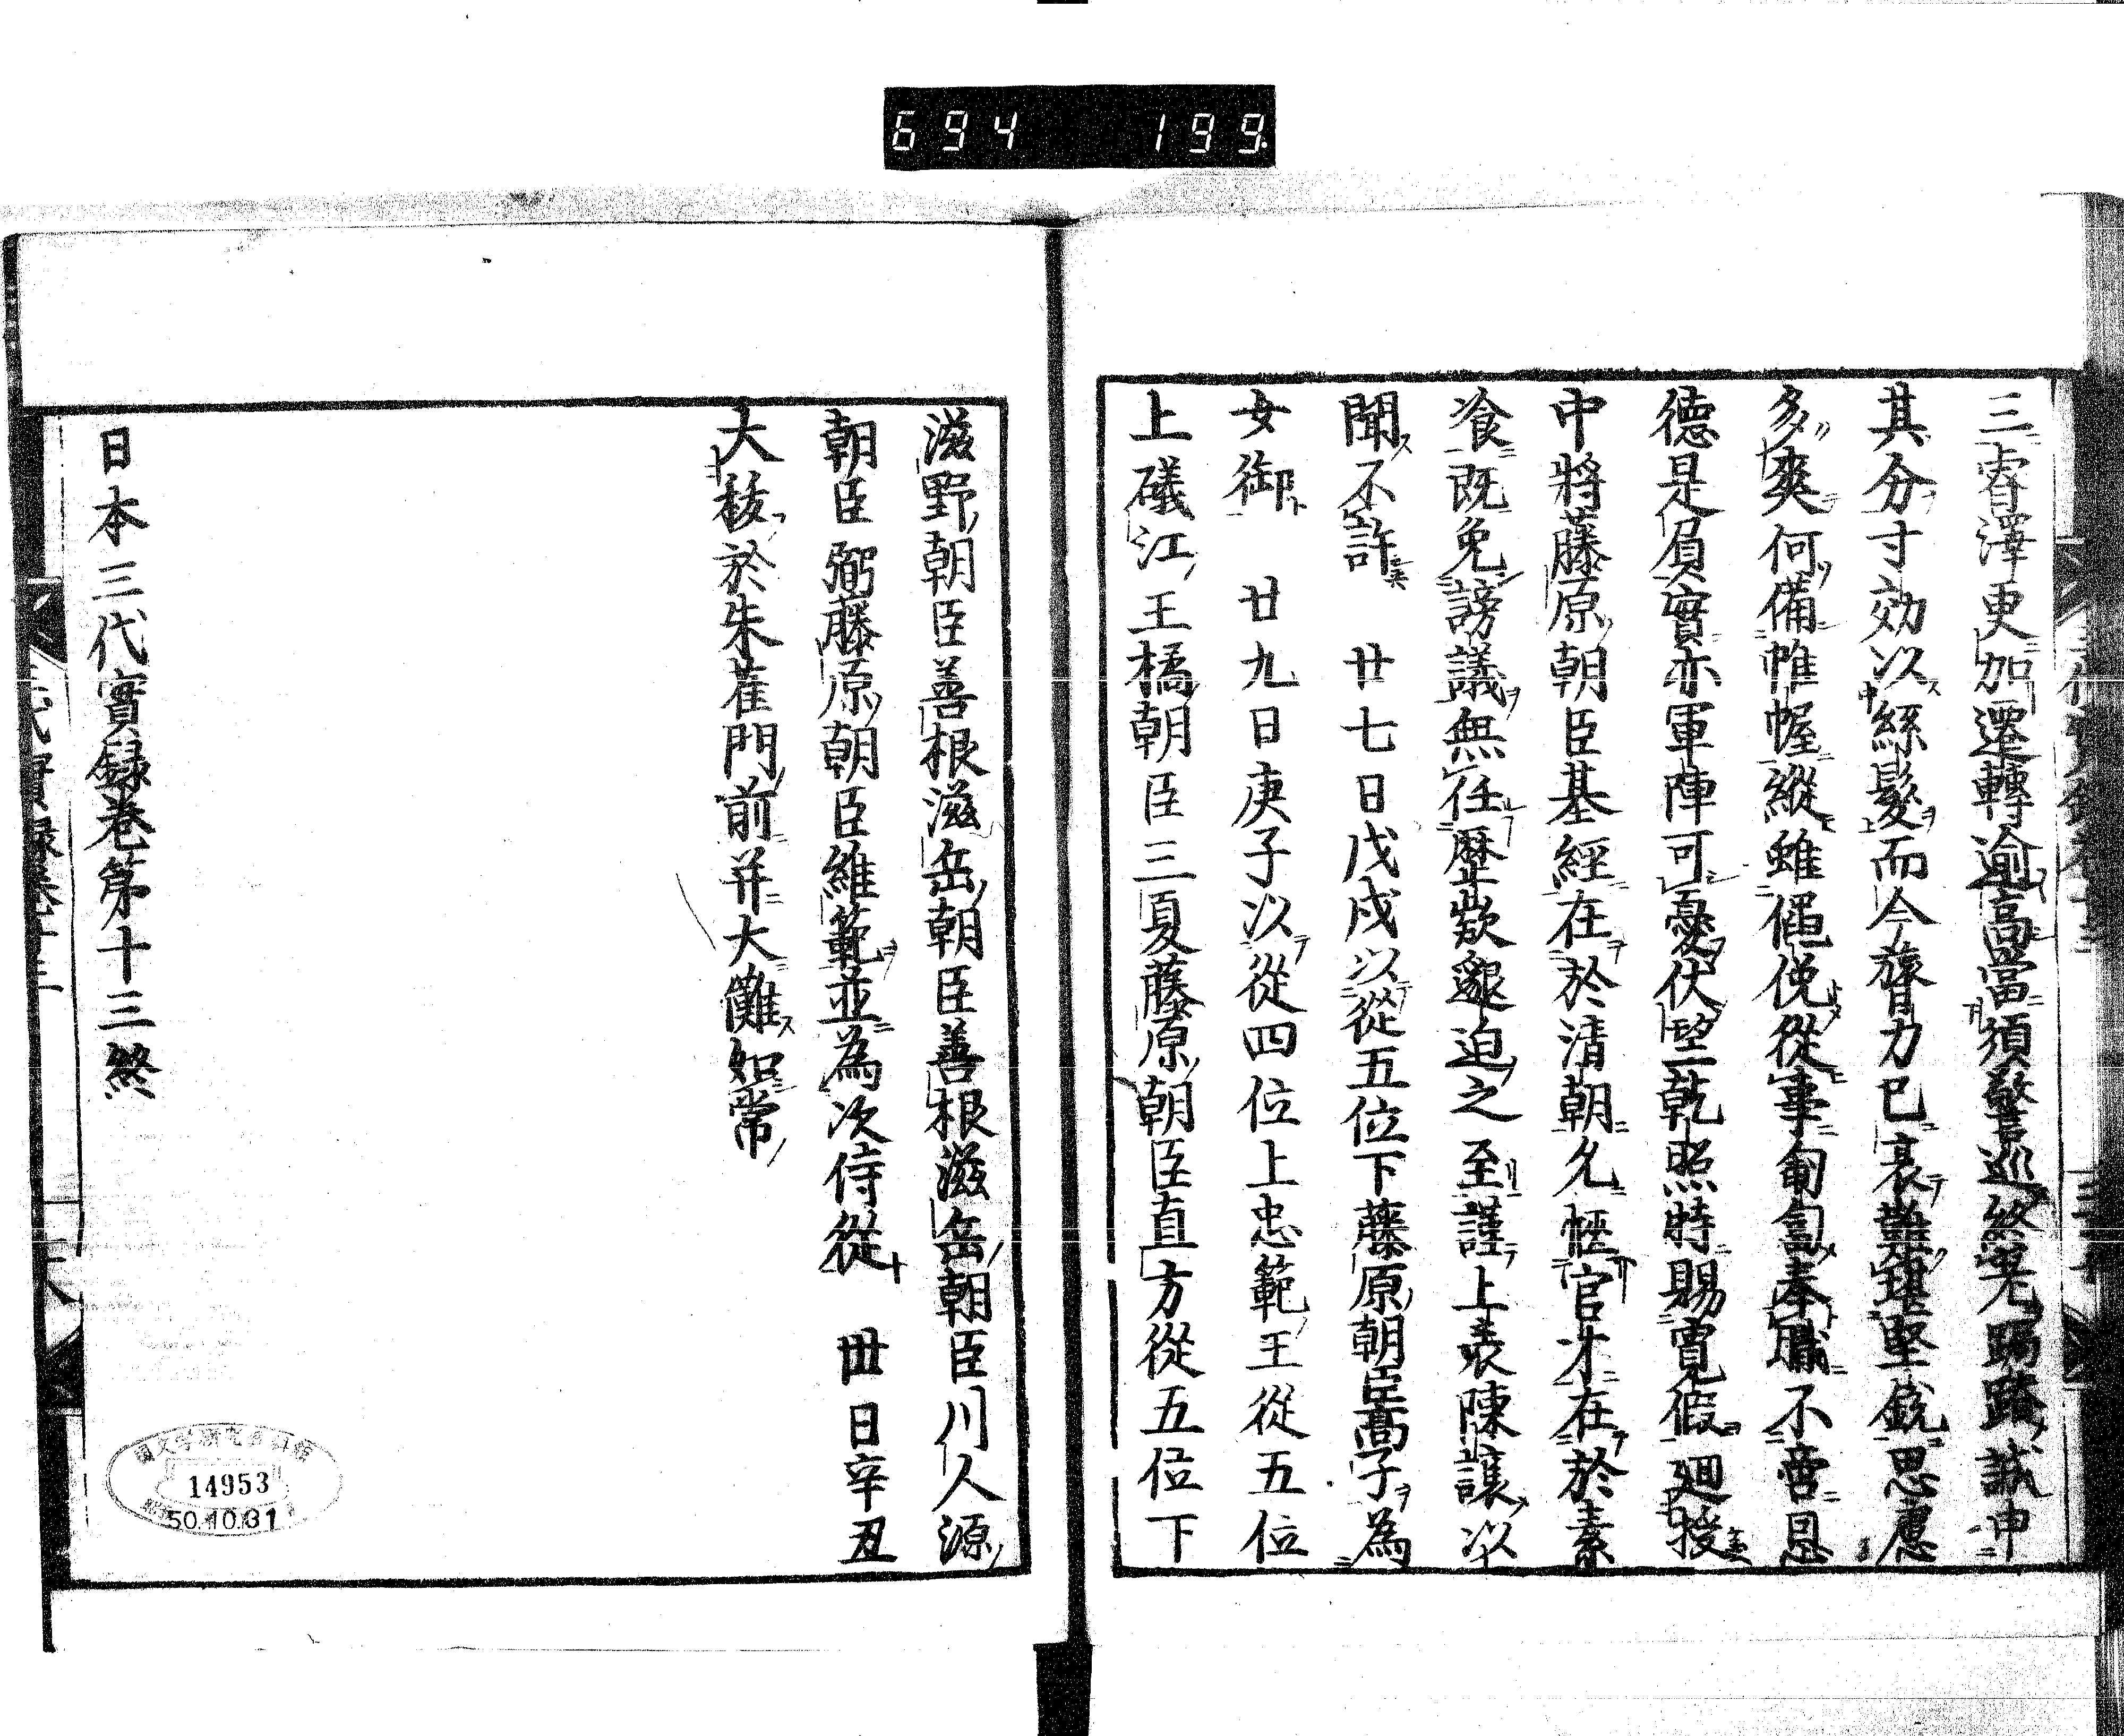 694 199
三睿澤更加遷轉逾高當須警巡終宅跼蹐誠申
其分寸効以絲髮而今膂力已衰難堪堅銳思慮
多爽何備帷幄縱雖僶俛從事匍匐奉職不啻忌
德是負實亦軍陣可憂伏望乾照特賜寬假廻授
中將藤原朝臣基經在於清朝允恇官才在於素
飡既免謗議無任歷欵邈迫之至謹上表陳讓以
聞不許 廿七日戊戌以從五位下藤原朝臣高子為
女御 廿九日庚子以從四位上忠範王從五位
上礒江王橘朝臣三夏藤原朝臣直方從五位下
滋野朝臣善根滋岳朝臣善根滋岳朝臣川人源
朝臣弼藤原朝臣維範並為次侍從 丗日辛丑
大祓於朱雀門前并大儺如常
日本三代實録卷第十三終
14953
50.10.31